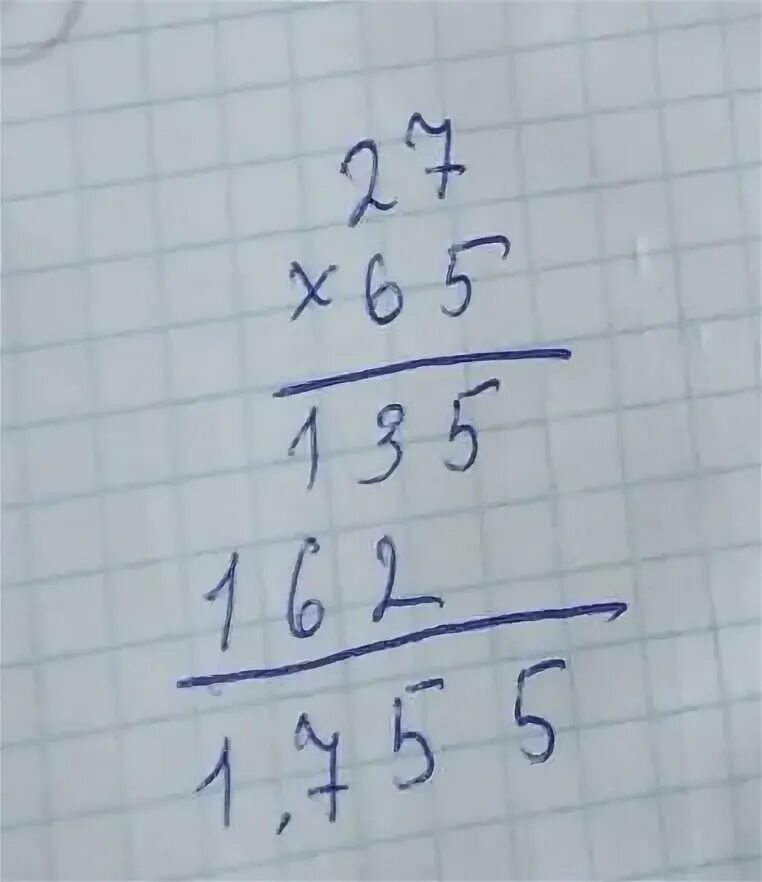 27
x 65
135
162
1,755